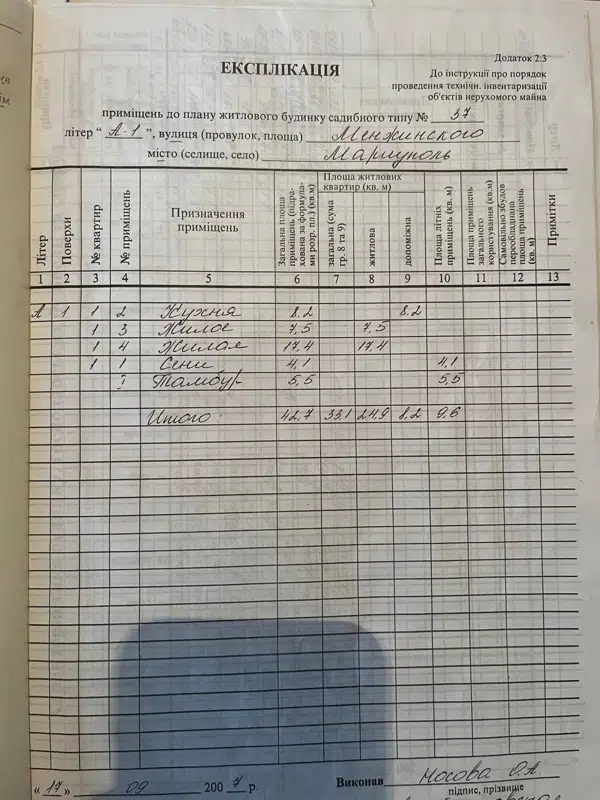 Додаток 2.3
ЕКСПЛІКАЦІЯ
До інструкції про порядок
проведення технічн. інвентаризації
об'єктів нерухомого майна
приміщень до плану житлового будинку садибного типу № 37
літер “ А-1 ”, вулиця (провулок, площа) Менжинского
місто (селище, село) Мариуполь
Літер Поверхи № квартир № приміщень Призначення приміщень Загальна площа приміщень (підрахована за формулами розр. пл.) (кв.м) Площа житлових квартир (кв. м) загальна (сума гр. 8 та 9) житлова допоміжна Площа літніх приміщень (кв. м) Площа приміщень загального користування (кв.м) Самовільно збудов переобладнана площа приміщень (кв. м) Примітки
1 2 3 4 5 6 7 8 9 10 11 12 13
А 1 1 2 Кухня 8.2 8.2
1 3 Жилое 7,5 7.5
1 4 Жилая 17,4 17,4
1 1 Сени 4,1 4,1
I Тамбур 5,5 5,5
Итого: 42,7 33,1 24,9 8,2 9,6
“ 17 ” 09 2007 р. Виконав Носова О.А.
підпис, прізвище